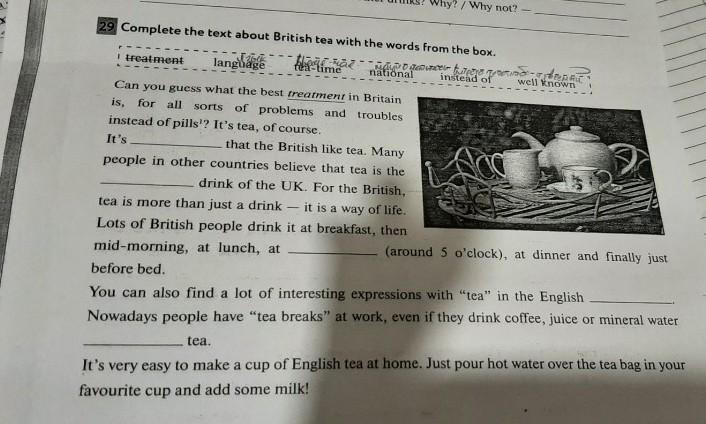 Why? / Why not?
29 Complete the text about British tea with the words from the box.
treatment language tea-time national instead of well known
Can you guess what the best treatment in Britain
is, for all sorts of problems and troubles
instead of pills¹? It's tea, of course.
It's ____________ that the British like tea. Many
people in other countries believe that tea is the
____________ drink of the UK. For the British,
tea is more than just a drink — it is a way of life.
Lots of British people drink it at breakfast, then
mid-morning, at lunch, at ____________ (around 5 o'clock), at dinner and finally just
before bed.
You can also find a lot of interesting expressions with “tea” in the English ____________.
Nowadays people have “tea breaks” at work, even if they drink coffee, juice or mineral water
____________ tea.
It's very easy to make a cup of English tea at home. Just pour hot water over the tea bag in your
favourite cup and add some milk!